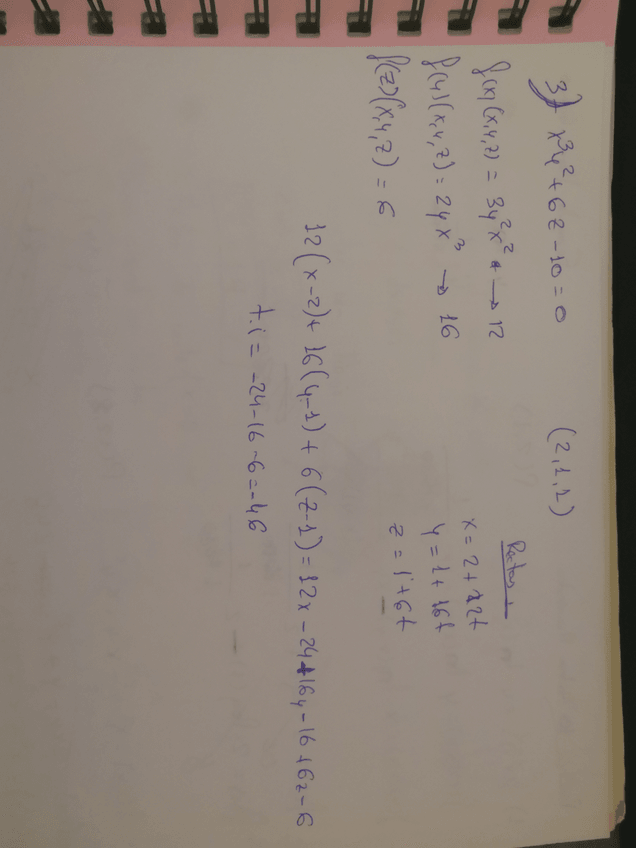 3) x³y² + 6z - 10 = 0 (2,1,1)
f(x)(x,y,z) = 3y²x² → 12
f(y)(x,y,z) = 2yx³ → 16
f(z)(x,y,z) = 6
x = 2+12t
y = 1+16t
z = 1+6t
12(x-2)+16(y-1)+6(z-1) = 12x-24+16y-16+6z-6
t.i = -24-16-6=-46